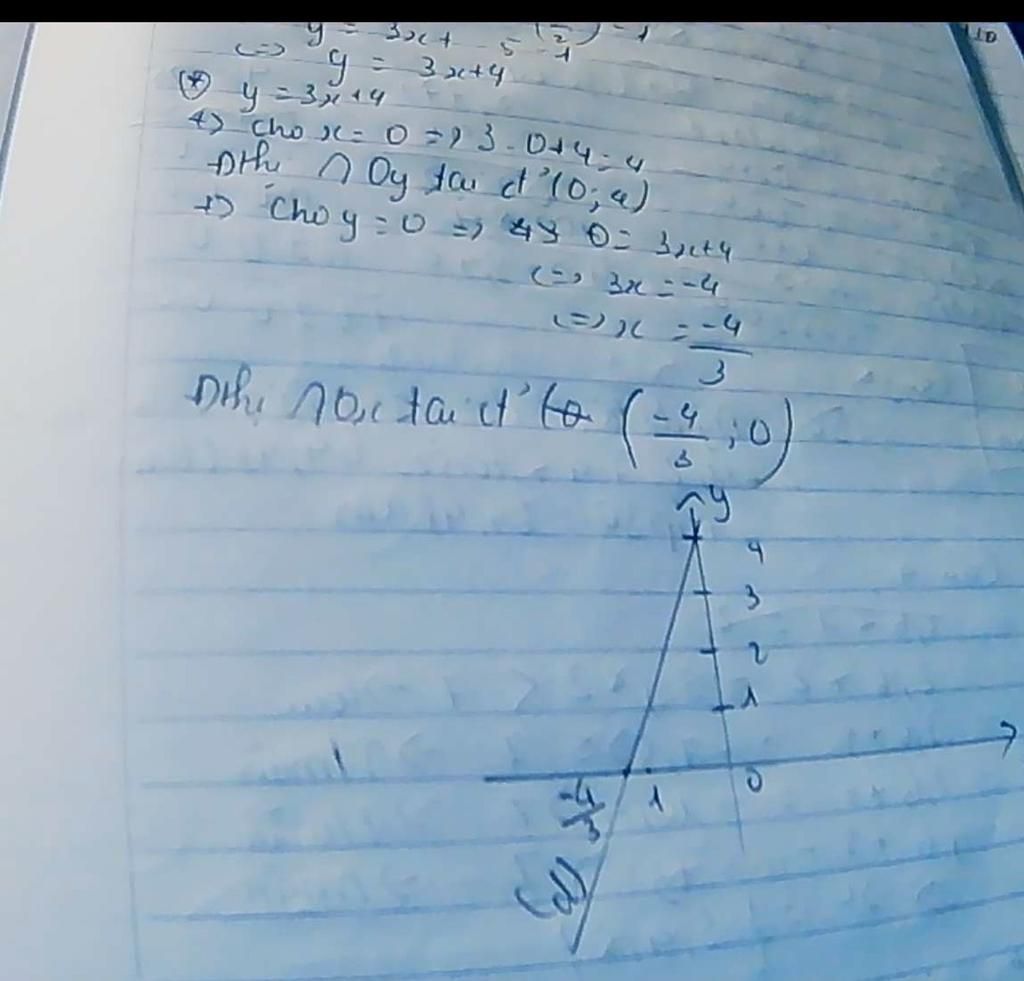 y = 3x +
<=> y = 3x+4
(*) y = 3x+4
+) cho x = 0 => 3 . 0+4 = 4
Dths ∩ Oy tại đ' (0; 4)
+) Cho y = 0 => 0 = 3x+4
<=> 3x = -4
<=> x = -4/3
Dths ∩ Ox tại đ' (-4/3 ; 0)
y
4
3
2
1
-4/3 1 0
(d)